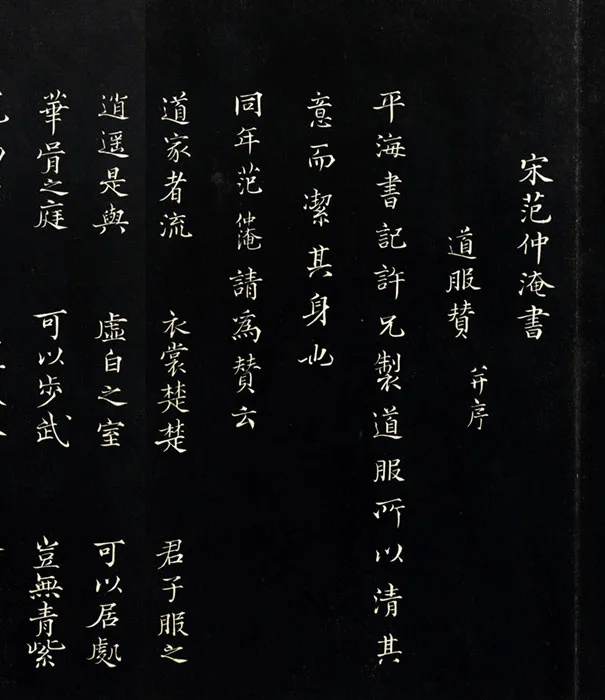 宋范仲淹書
道服賛 并序
平海書記許兄製道服所以清其
意而潔其身也
同年范仲淹請為賛云
道家者流 衣裳楚楚 君子服之
逍遥是與 虛白之室 可以居處
華胥之庭 可以步武 豈無青紫